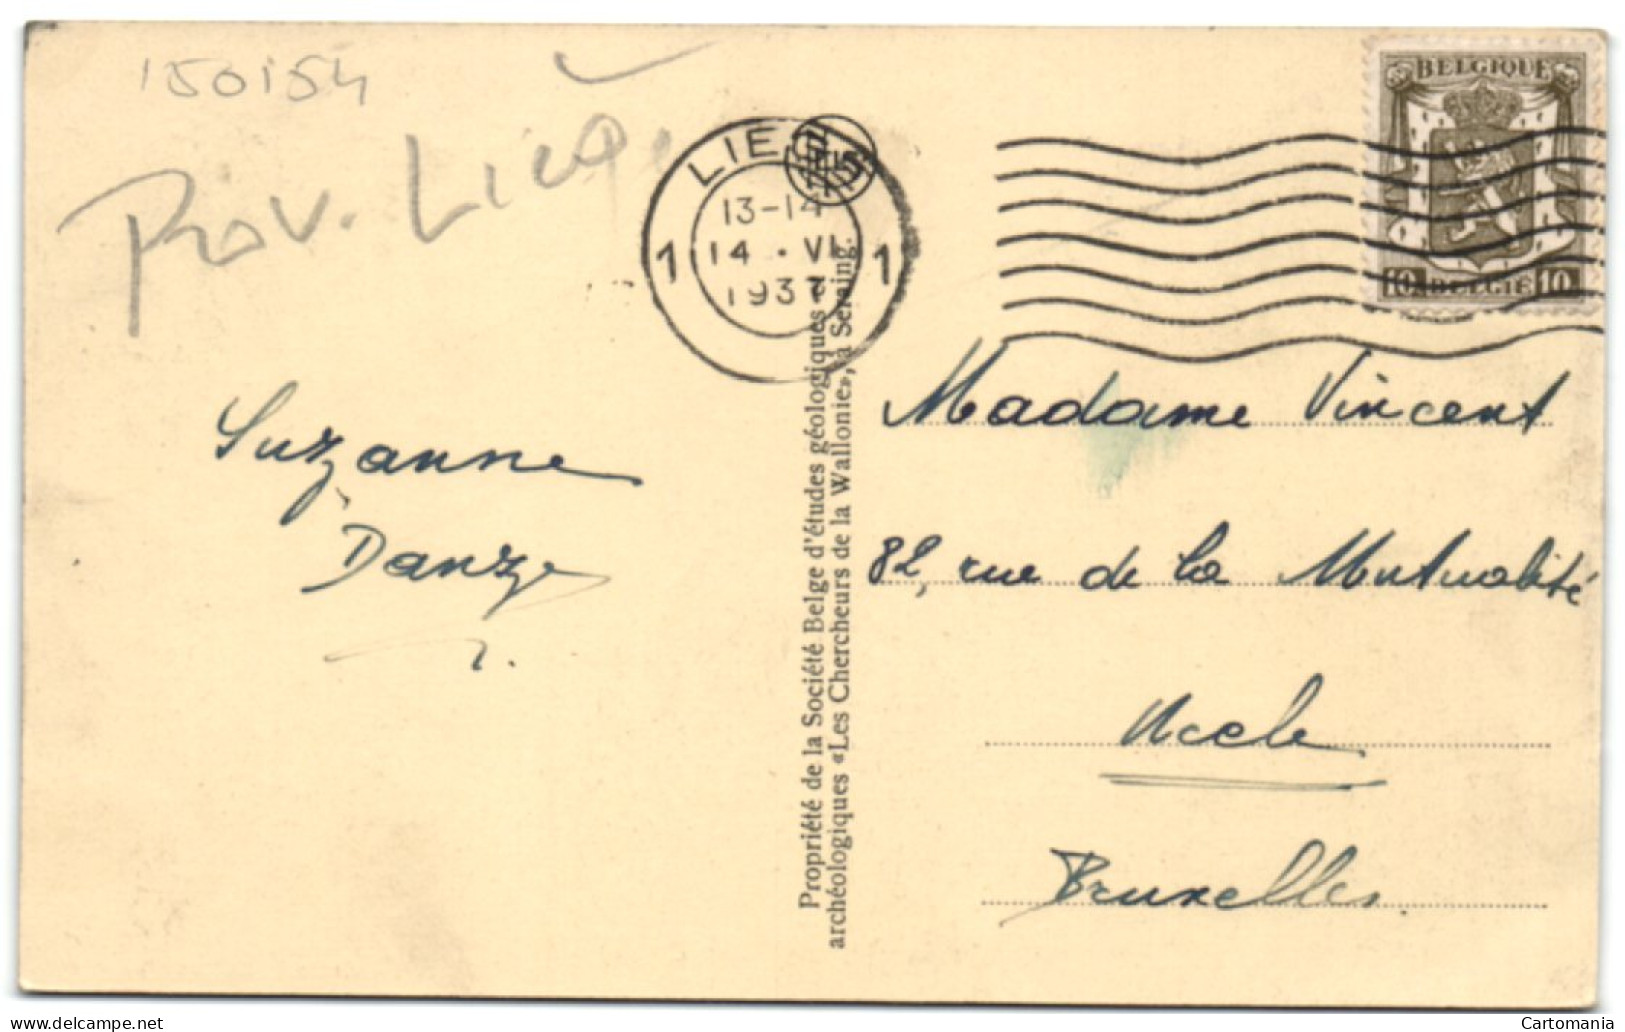 150154
Prov. Liège.
LIE
13-14
14 · VI
1937
1 1
BELGIQUE
10 BELGIË 10
Suzanne
Danze
Propriété de la Société Belge d'études géologiques et
archéologiques «Les Chercheurs de la Wallonie», à Seraing.
Madame Vincent
82, rue de la Mutualité
Uccle
Bruxelles.
Cartomania